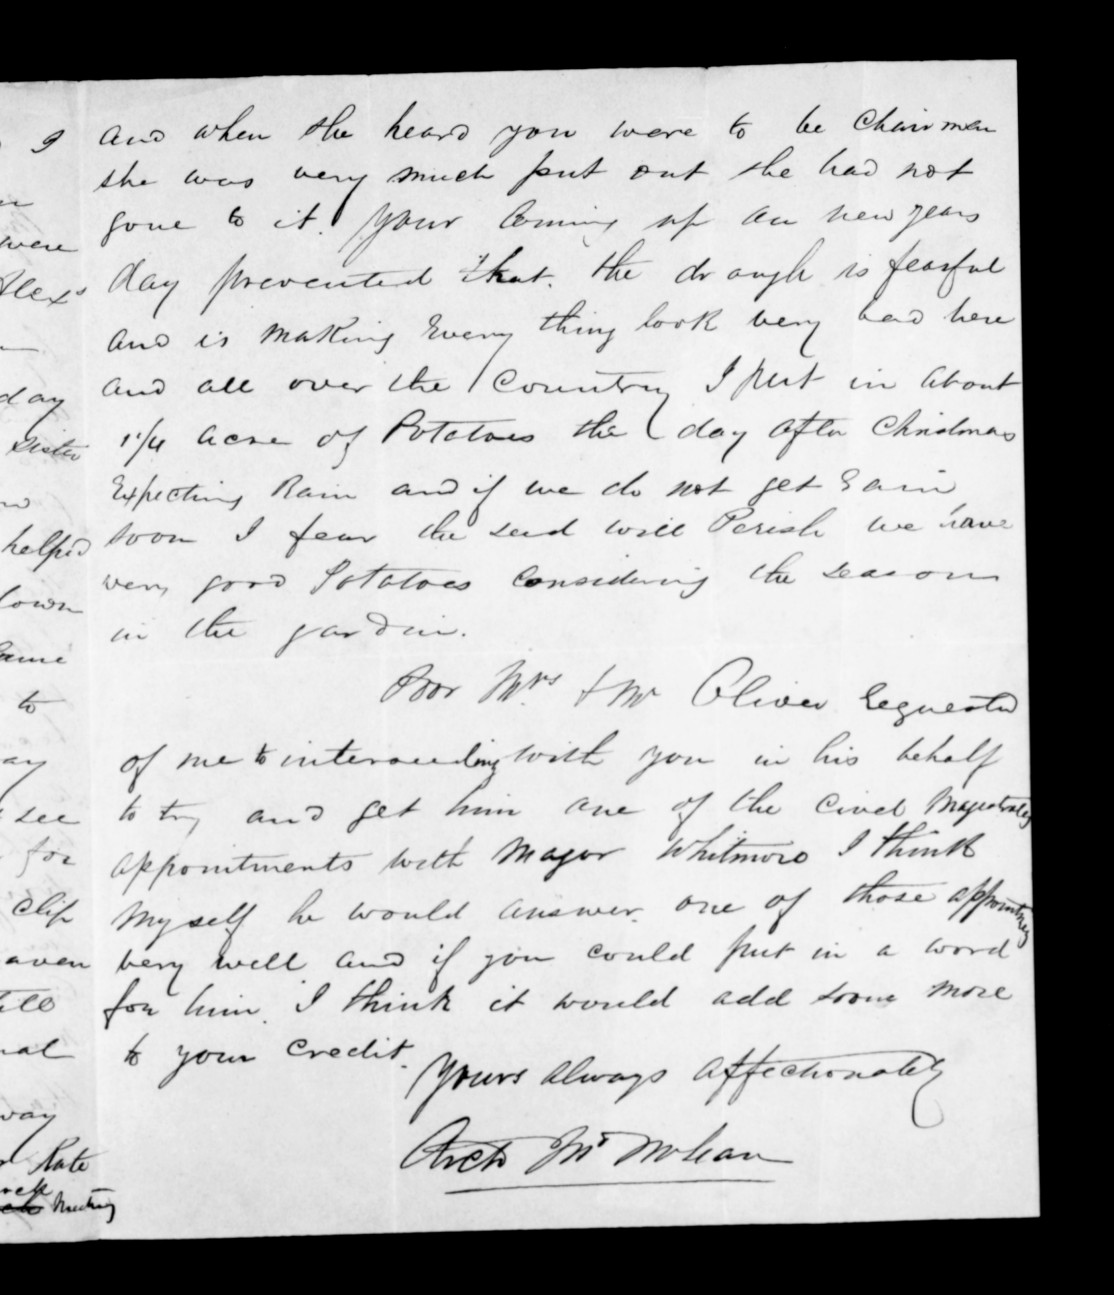 and when she heard you were to be Chairman
she was very much put out she had not
gone to it. Your Coming up on new years
day prevented that. the drough is fearful
and is making Every thing look very bad here
and all over the Country I put in about
1 1/4 acre of Potatoes the day after Christmas
Expecting Rain and if we do not get Rain
soon I fear the seed will Perish we have
very good Potatoes Considering the season
in the gardin.
Poor Mrs & Mr Oliver Requested
of me to with you in his behalf
to try and get him one of the Civel
appointments with Major Whitmore I think
myself he would answer one of those
very well and if you could put in a word
for him. I think it would add some more
to your Credit.
Yours always affectionately
Arch
I
were
Alexr
day
sister
helped
down
same
to
see
for
clip
till
way
Rate
Meeting